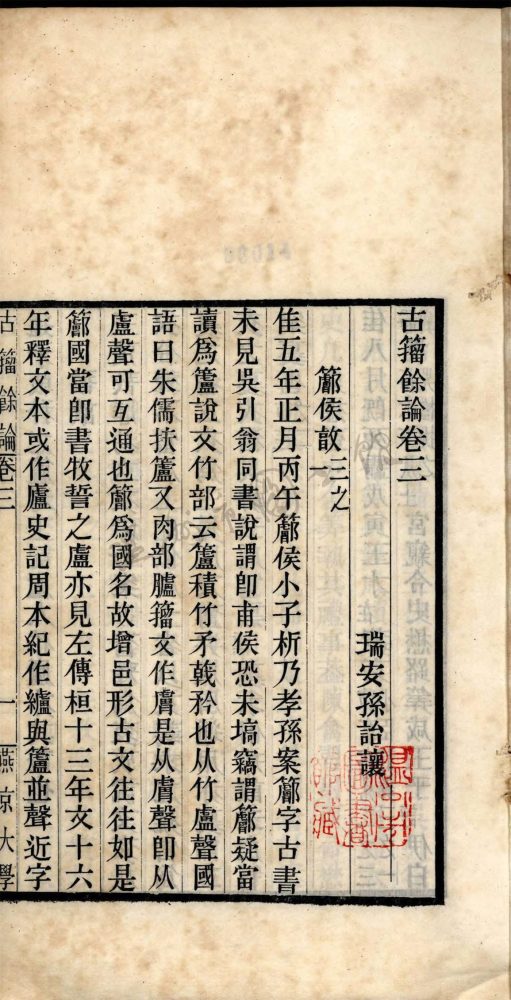 古籀餘論卷三
瑞安孫詒讓
侯敦 三之一
隹五年正月丙午侯小子析乃孝孫案字古書
未見吳引翁同書說謂卽甫侯恐未塙竊謂疑當
讀爲籚說文竹部云籚積竹矛戟矜也从竹盧聲國
語曰朱儒扶籚又肉部臚籀文作膚是从膚聲卽从
盧聲可互通也爲國名故增邑形古文往往如是
國當卽書牧誓之盧亦見左傳桓十三年文十六
年釋文本或作廬史記周本紀作纑與籚並聲近字
古籀餘論卷三 一 燕京大學